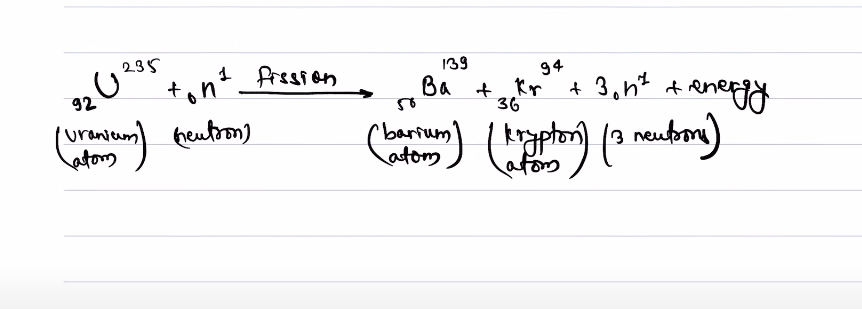 ₉₂U²³⁵ + ₀n¹ fission → ₅₀Ba¹³⁹ + ₃₆Kr⁹⁴ + 3₀n¹ + energy
(uranium atom) (neutron) (barium atom) (krypton atom) (3 neutrons)